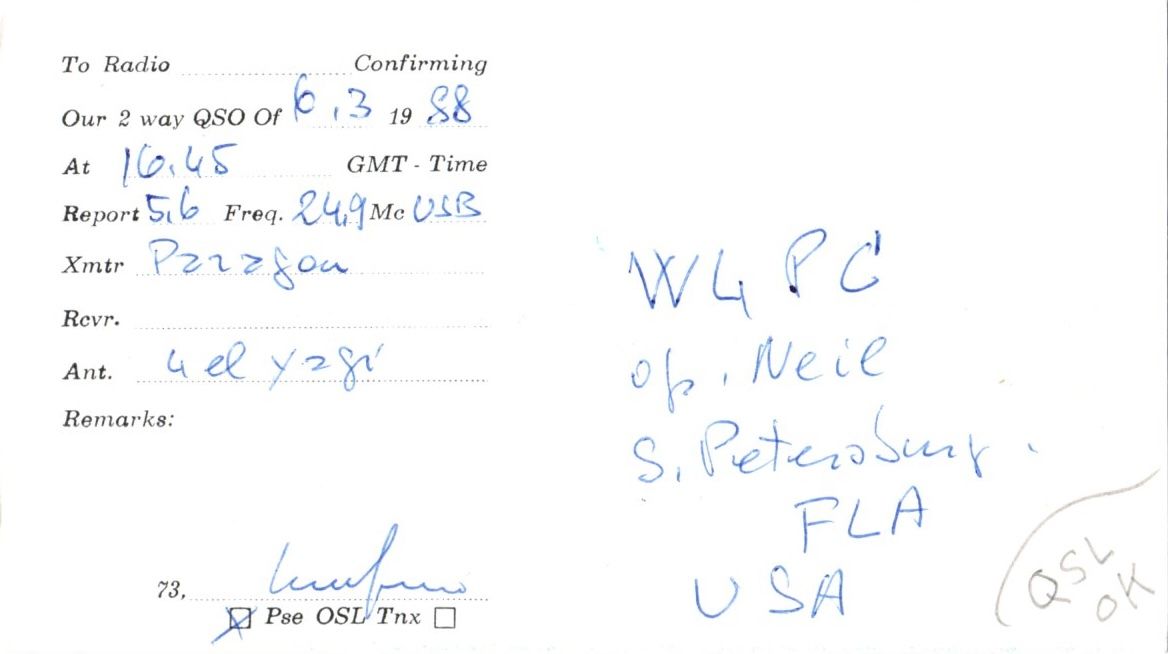 To Radio Confirming
Our 2 way QSO Of 6.3 1988
At 16.45 GMT - Time
Report 5,6 Freq. 24,9 Mc USB
Xmtr Paragon
Rcvr.
Ant. 4 el yagi
Remarks:
73,
Pse QSL Tnx
W4PC
op. Neil
S. Petersburg.
FLA
USA
QSL
OK